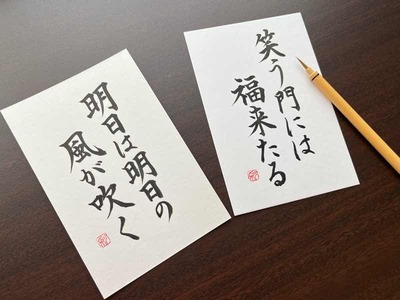 笑う門には
福来たる
明日は明日の
風が吹く